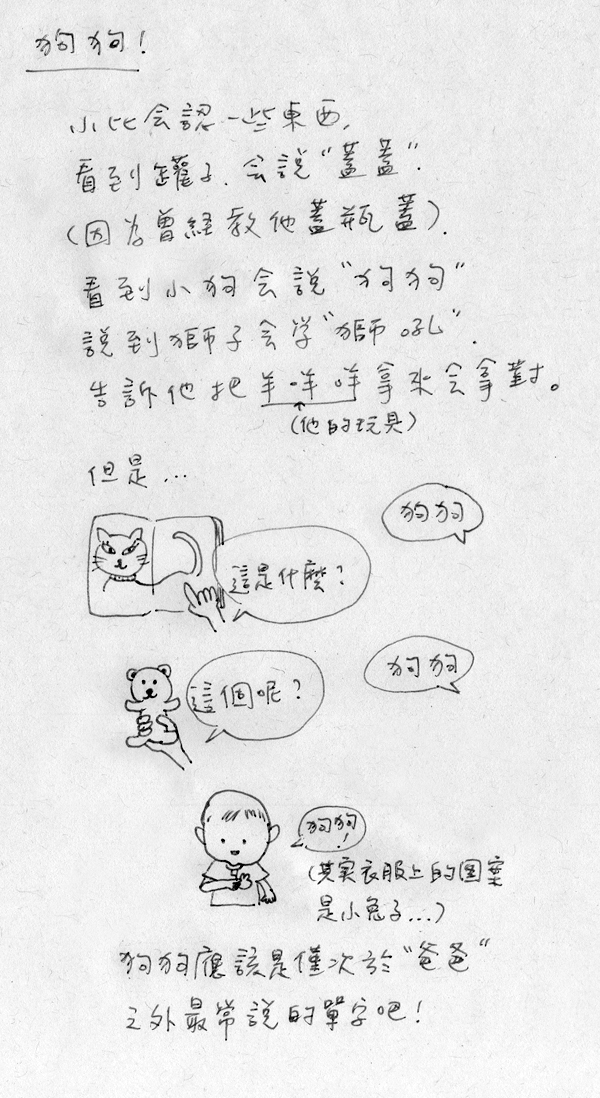 狗狗!
小比会認一些東西,
看到罐子.会說"蓋蓋".
(因为曾経教他蓋瓶蓋).
看到小狗会說"狗狗"
說到獅子会学"獅吼".
告訴他把羊咩咩拿來会拿對。
(他的玩具)
但是...
狗狗
這是什麼?
狗狗
這個呢?
狗狗!
(其実衣服上的图案
是小兔子...)
狗狗應該是僅次於"爸爸"
之外最常說的單字吧!